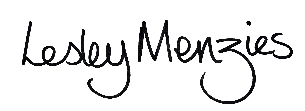 Lesley Menzies